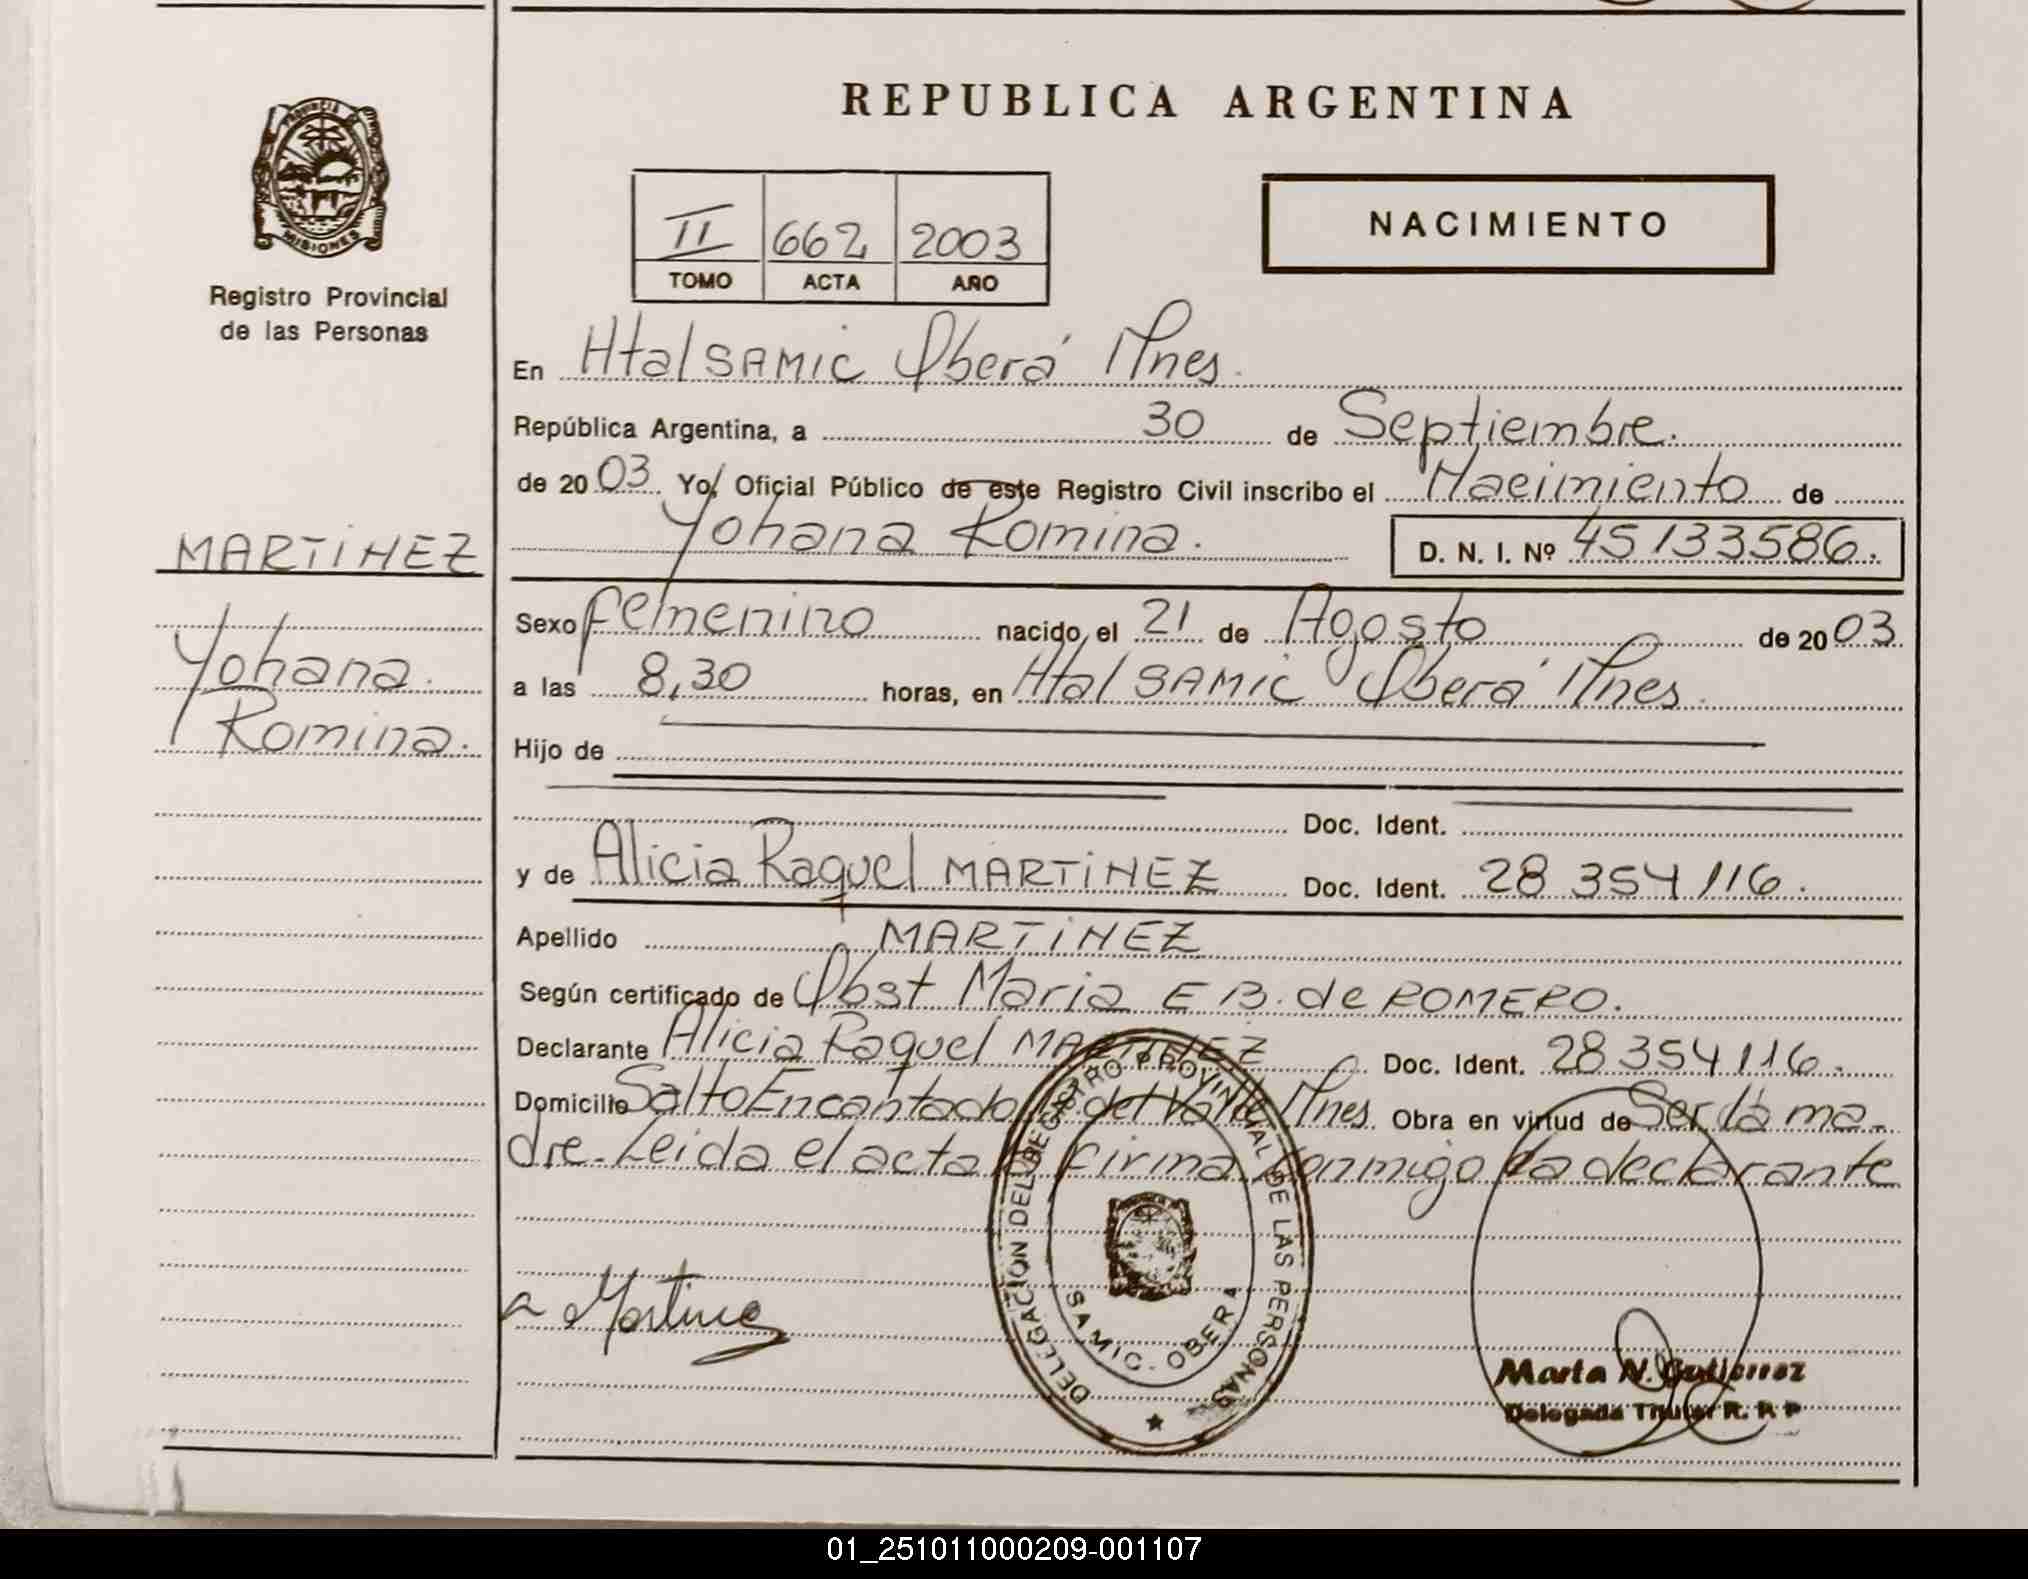 REPUBLICA ARGENTINA
PROVINCIA DE
MISIONES
Registro Provincial
de las Personas
II 662 2003
TOMO ACTA AÑO
NACIMIENTO
En Htal SAMIC Oberá Mnes.
República Argentina, a 30 de Septiembre.
de 2003. Yo, Oficial Público de este Registro Civil inscribo el Nacimiento de
Yohana Romina. D. N. I. Nº 45133586.
MARTINEZ
Yohana
Romina.
Sexo femenino nacido, el 21 de Agosto de 2003.
a las 8,30 horas, en Htal SAMIC Oberá Mnes.
Hijo de
Doc. Ident.
y de Alicia Raquel MARTINEZ Doc. Ident. 28 354 116.
Apellido MARTINEZ
Según certificado de Obst Maria E B. de ROMERO.
Declarante Alicia Raquel MARTINEZ Doc. Ident. 28 354 116.
Domicilio Salto Encantado del Valle Mnes. Obra en virtud de Ser la ma-
dre. Leida el acta firma conmigo la declarante
a Martinez
DELEGACION DEL REGISTRO PROVINCIAL DE LAS PERSONAS
SAMIC - OBERA
Marta N. Gutierrez
Delegada Titular R. P. P
01_251011000209-001107